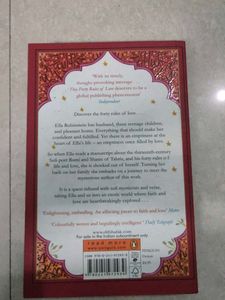 'With its timely,
thought-provoking message ...
The Forty Rules of Love deserves to be a
global publishing phenomenon'
Independent
Discover the forty rules of love ...
Ella Rubinstein has a husband, three teenage children,
and a pleasant home. Everything that should make her
confident and fulfilled. Yet there is an emptiness at the
heart of Ella's life – an emptiness once filled by love.
So when Ella reads a manuscript about the thirteenth-century
Sufi poet Rumi and Shams of Tabriz, and his forty rules of
life and love, she is shocked out of herself. Turning her
back on her family she embarks on a journey to meet the
mysterious author of this work.
It is a quest infused with Sufi mysticism and verse,
taking Ella and us into an exotic world where faith and
love are heartbreakingly explored ...
'Enlightening, enthralling. An affecting paean to faith and love' Metro
'Colourfully woven and beguilingly intelligent' Daily Telegraph
www.elifshafak.com
For sale in the Indian Subcontinent only
read more
www.penguin.com
PENGUIN
Fiction